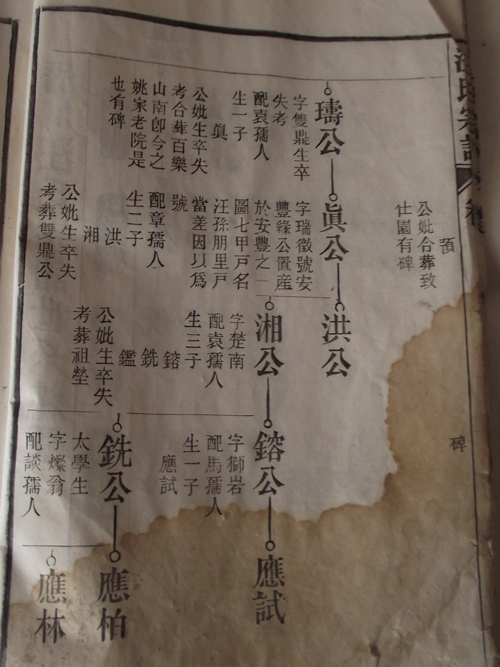 汪氏宗譜
預
公妣合葬致
仕園有碑
碑
璹公
字雙鼎生卒
失考
配袁孺人
生一子
眞
公妣生卒失
考合葬百樂
山南卽今之
姚家老院是
也有碑
眞公
字瑞徵號安
豐緣公置産
於安豐之一
圖七甲戶名
汪孫朋里戶
當差因以爲
號
配章孺人
生二子
洪
湘
公妣生卒失
考葬雙鼎公
洪公
湘公
字楚南
配袁孺人
生三子
鎔
銑
鑑
公妣生卒失
考葬祖塋
鎔公
字獅岩
配馬孺人
生一子
應試
應試
銑公
太學生
字燦翁
配談孺人
應柏
應林